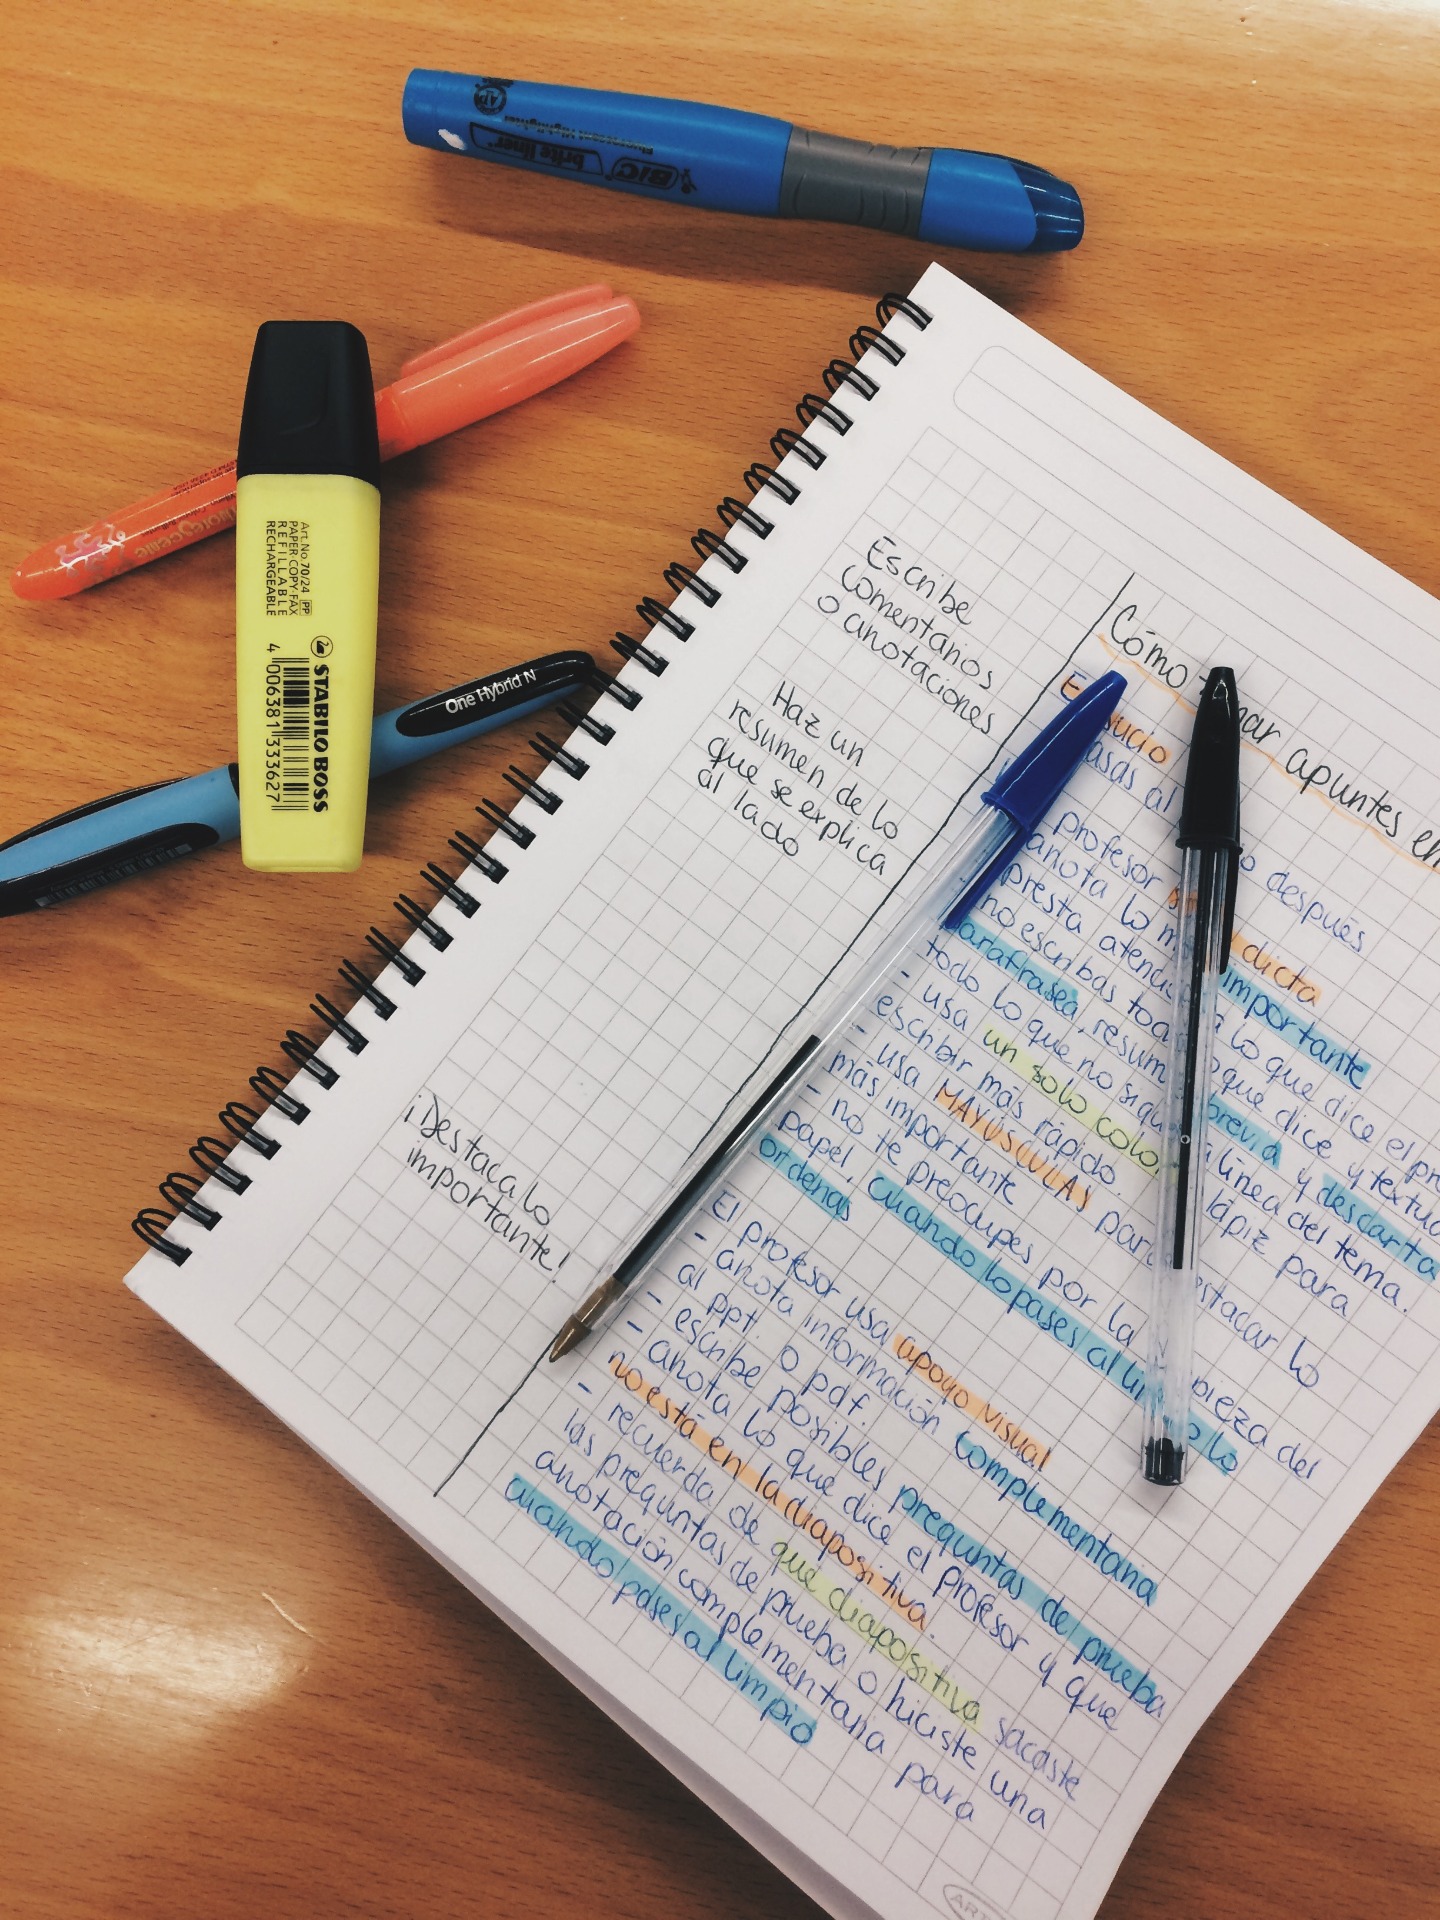 BIC
brite liner
Fluorescent Highlighter
Art.No 70/24 PP
PAPER COPY-FAX
REFILLABLE
RECHARGEABLE
STABILO BOSS
4 006381 333627
One Hybrid N
Escribe
comentarios
o anotaciones
Haz un
resumen de lo
que se explica
al lado
¡Destaca lo
importante!
Cómo apuntes en
sucio
pasas al después
profesor dicta
anota lo más importante
presta atención a lo que dice el
no escribas todo lo que dice y
parafrasea, resume, abrevia y descarta
todo lo que no sigue la línea del tema.
- usa un solo color lápiz para
escribir más rápido.
- usa MAYÚSCULAS para destacar lo
más importante
- no te preocupes por la limpieza del
papel, cuando lo pases al limpio lo
ordenas
El profesor usa apoyo visual
- anota información complementaria
al ppt. o pdf.
- escribe posibles preguntas de prueba
- anota lo que dice el profesor y que
no está en la diapositiva.
- recuerda de qué diapositiva sacaste
las preguntas de prueba o hiciste una
anotación complementaria para
cuando pases al limpio